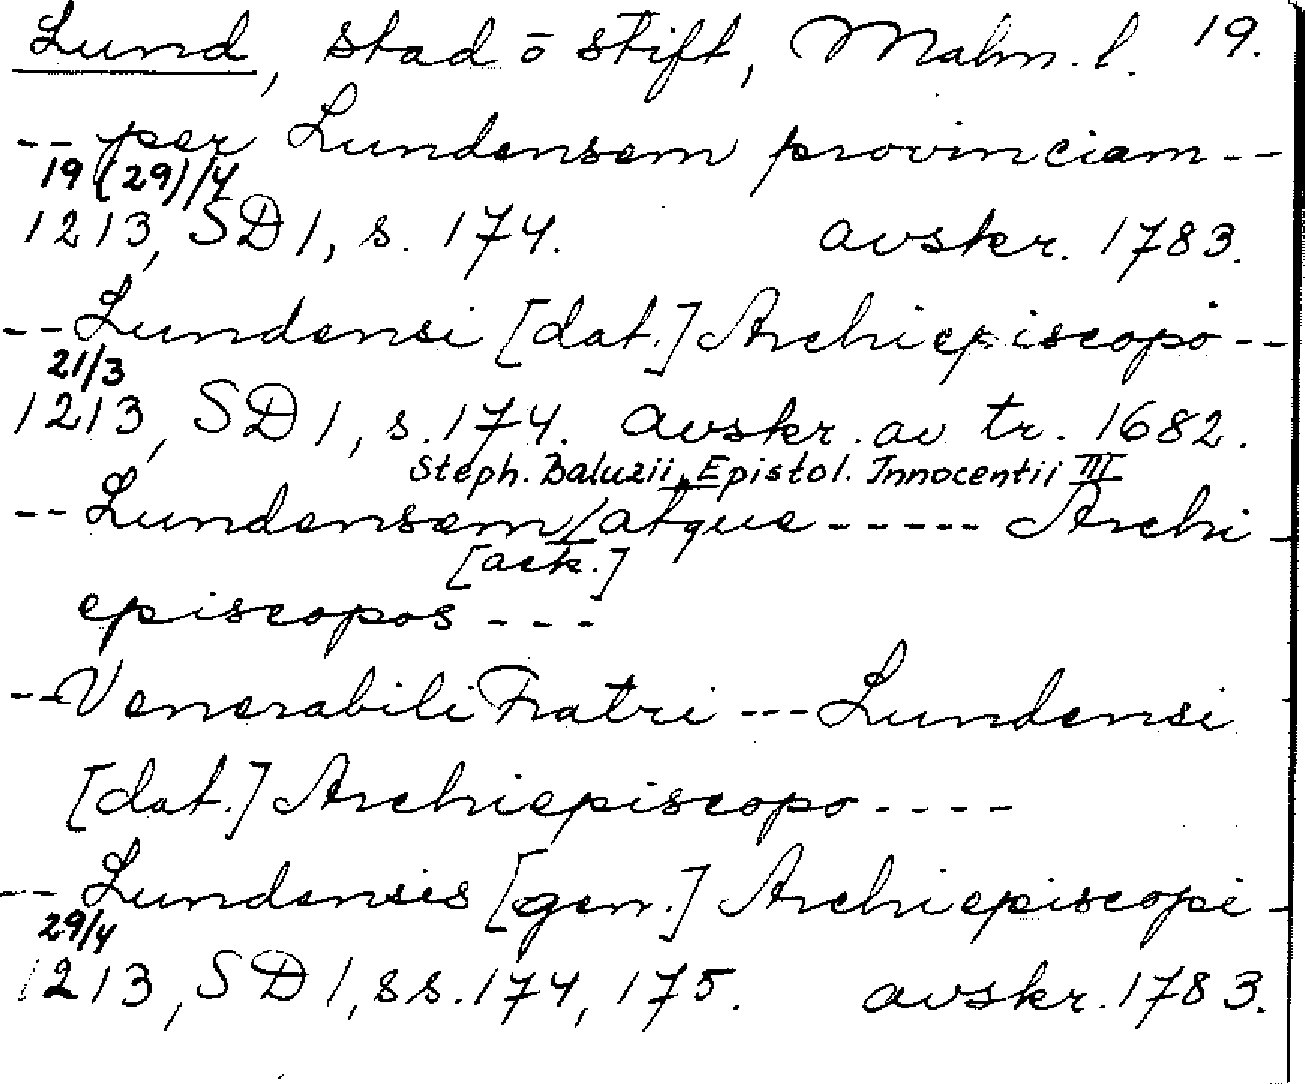 Lund, stad ō stift, Malm. l. 19.
-- per Lundensem provinciam --
19 (29)/4
1213, SD 1, s. 174. avskr. 1783.
-- Lundensi [dat.] Archiepiscopo --
21/3
1213, SD 1, s. 174. avskr. av tr. 1682.
Steph. Baluzii, Epistol. Innocentii III
-- Lundensem / atque ----- Archi-
[ack.]
episcopos ---
-- Venerabili Fratri --- Lundensi
[dat.] Archiepiscopo ----
-- Lundensis [gen.] Archiepiscopi -
29/4
1213, SD 1, ss. 174, 175. avskr. 1783.